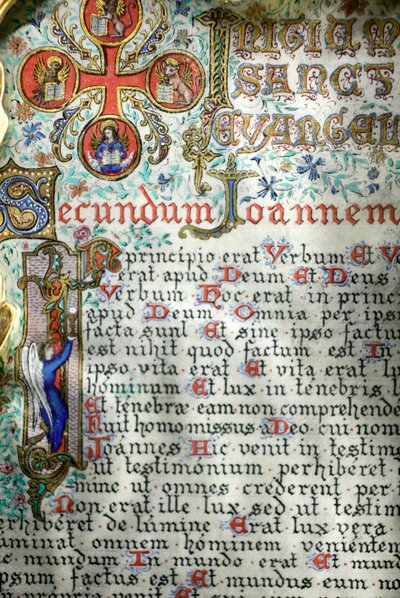 INITIUM
SANCT
EVANGEL
Secundum Joannem
In principio erat Verbum Et V
erat apud Deum Et Deus
Verbum Hoc erat in princi
apud Deum Omnia per ips
facta sunt Et sine ipso factu
est nihil quod factum est In
ipso vita erat Et vita erat lu
hominum Et lux in tenebris l
Et tenebræ eam non comprehende
Fuit homo missus a Deo cui nom
Joannes Hic venit in testim
ut testimonium perhiberet
mine ut omnes crederent per i
Non erat ille lux sed ut testim
erhiberet de lumine Erat lux vera
uminat omnem hominem veniente
c mundum In mundo erat Et m
psum factus est Et mundus eum no
propria venit Et